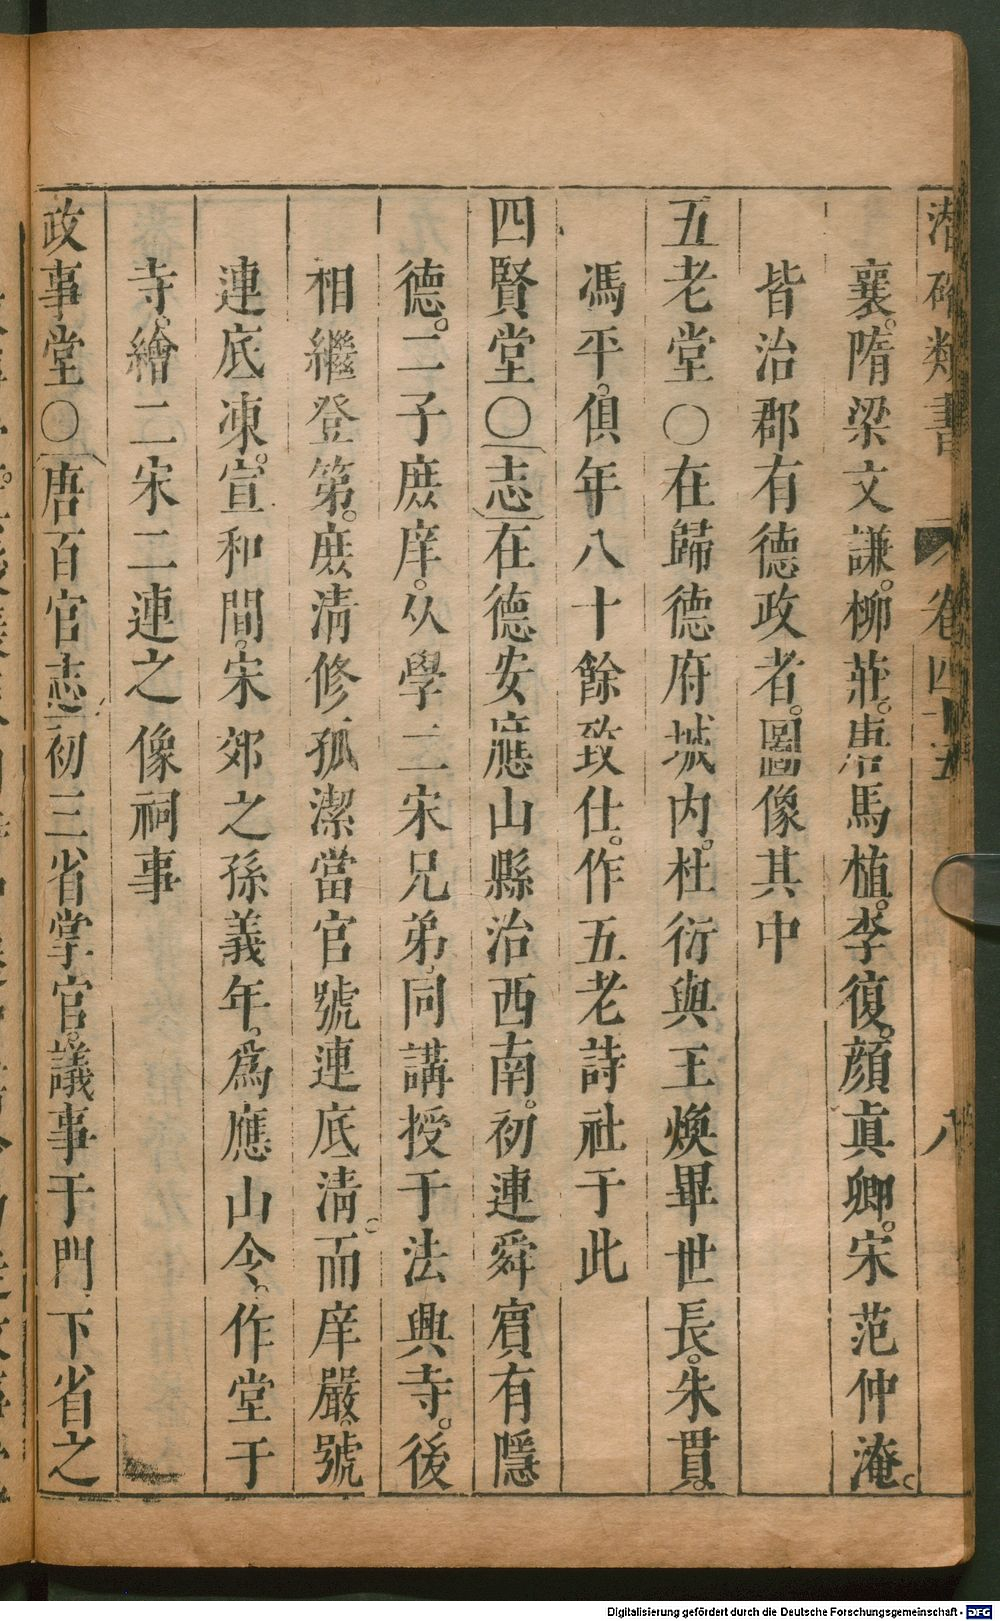 潛確類書 卷四十五 八
襄。隋梁文謙。柳莊。唐馬植。李復。顏眞卿。宋范仲淹。
皆治郡有德政者。圖像其中
五老堂○在歸德府城内。杜衍與王煥畢世長。朱貫。
馮平。俱年八十餘致仕。作五老詩社于此
四賢堂○志在德安應山縣治西南。初連舜賓有隱
德。二子庶庠。从學二宋兄弟。同講授于法興寺。後
相繼登第。庶淸修孤潔當官號連底淸。而庠嚴。號
連底凍。宣和間。宋郊之孫義年。爲應山令。作堂于
寺。繪二宋二連之像祠事
政事堂○唐百官志初三省掌官。議事于門下省之
Digitalisierung gefördert durch die Deutsche Forschungsgemeinschaft - DFG